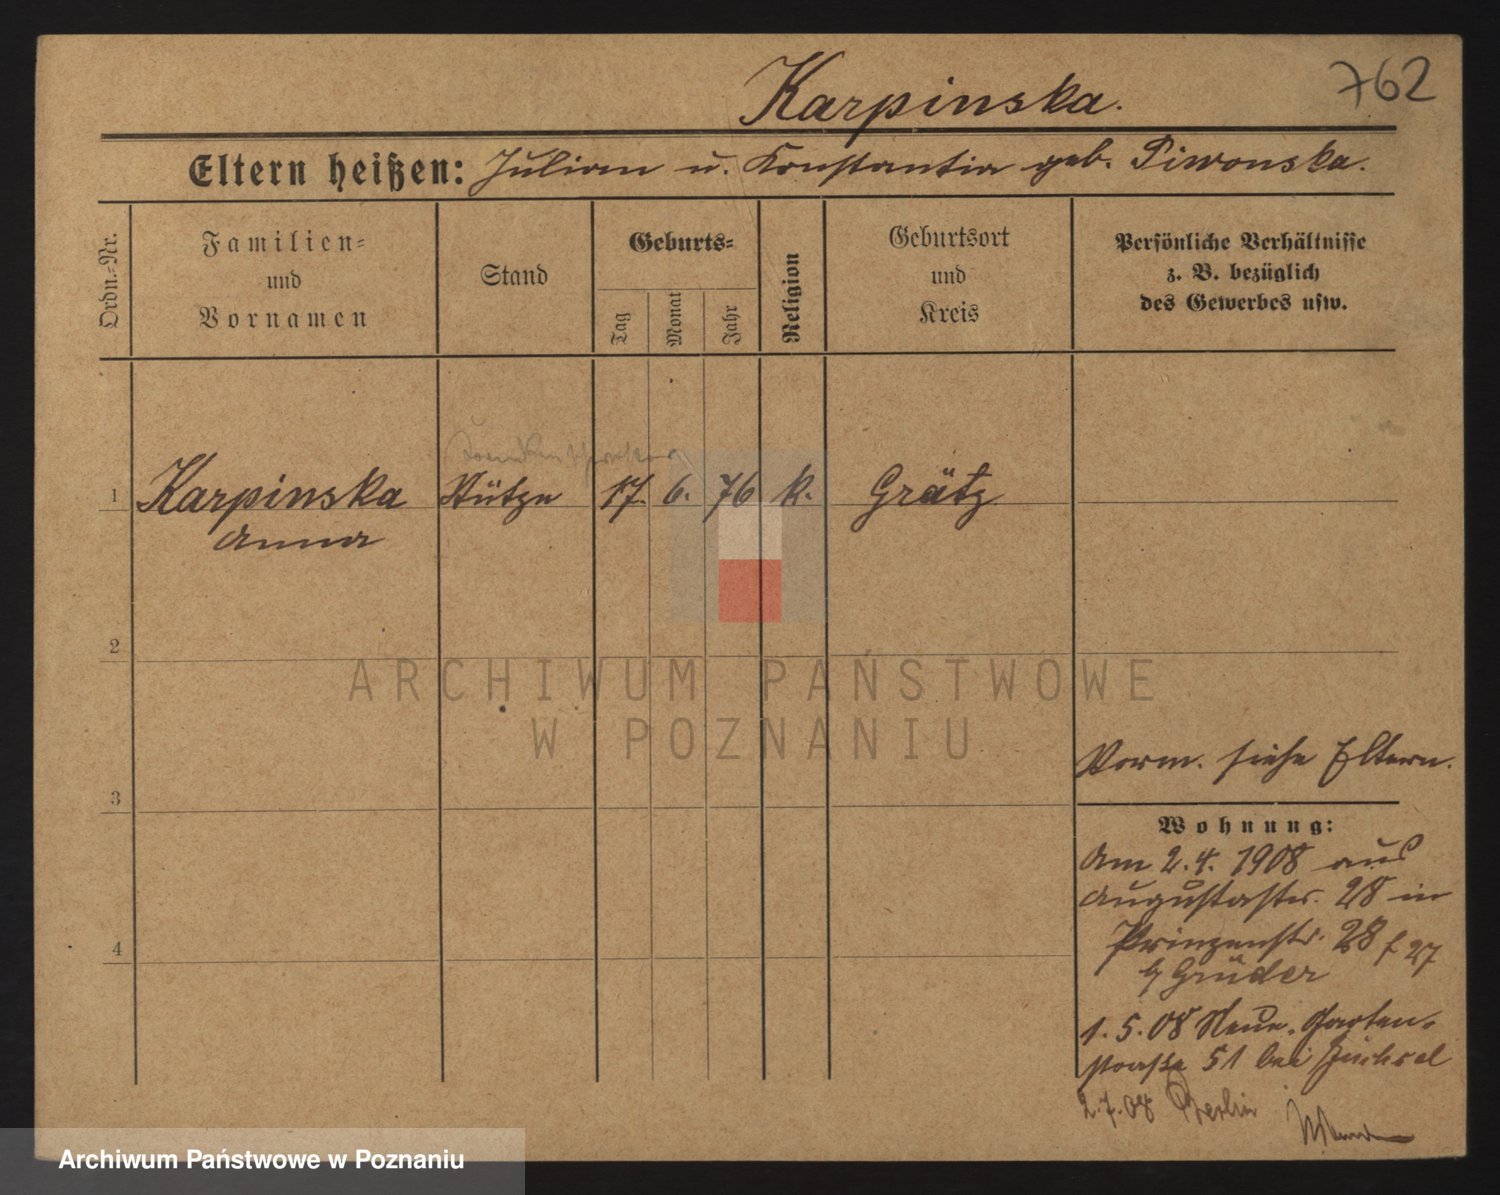 762
Karpinska.
Eltern heißen: Julian u. Konstantia geb. Piwonska.
Ordn.-Nr.
Familien-
und
Vornamen
Stand
Geburts-
Tag
Monat
Jahr
Religion
Geburtsort
und
Kreis
Persönliche Verhältnisse
z. B. bezüglich
des Gewerbes usw.
1 Karpinska Stütze 17. 6. 76 k. Grätz
Anna
2
3
4
Vorm. siehe Eltern.
Wohnung:
Am 2.4. 1908 aus
Augustastr. 28 in
Prinzenstr. 28
b/ Grüder
1. 5. 08 Neue-Garten-
straße 51 bei
2.7.08 Berlin
ARCHIWUM PAŃSTWOWE
W POZNANIU
Archiwum Państwowe w Poznaniu